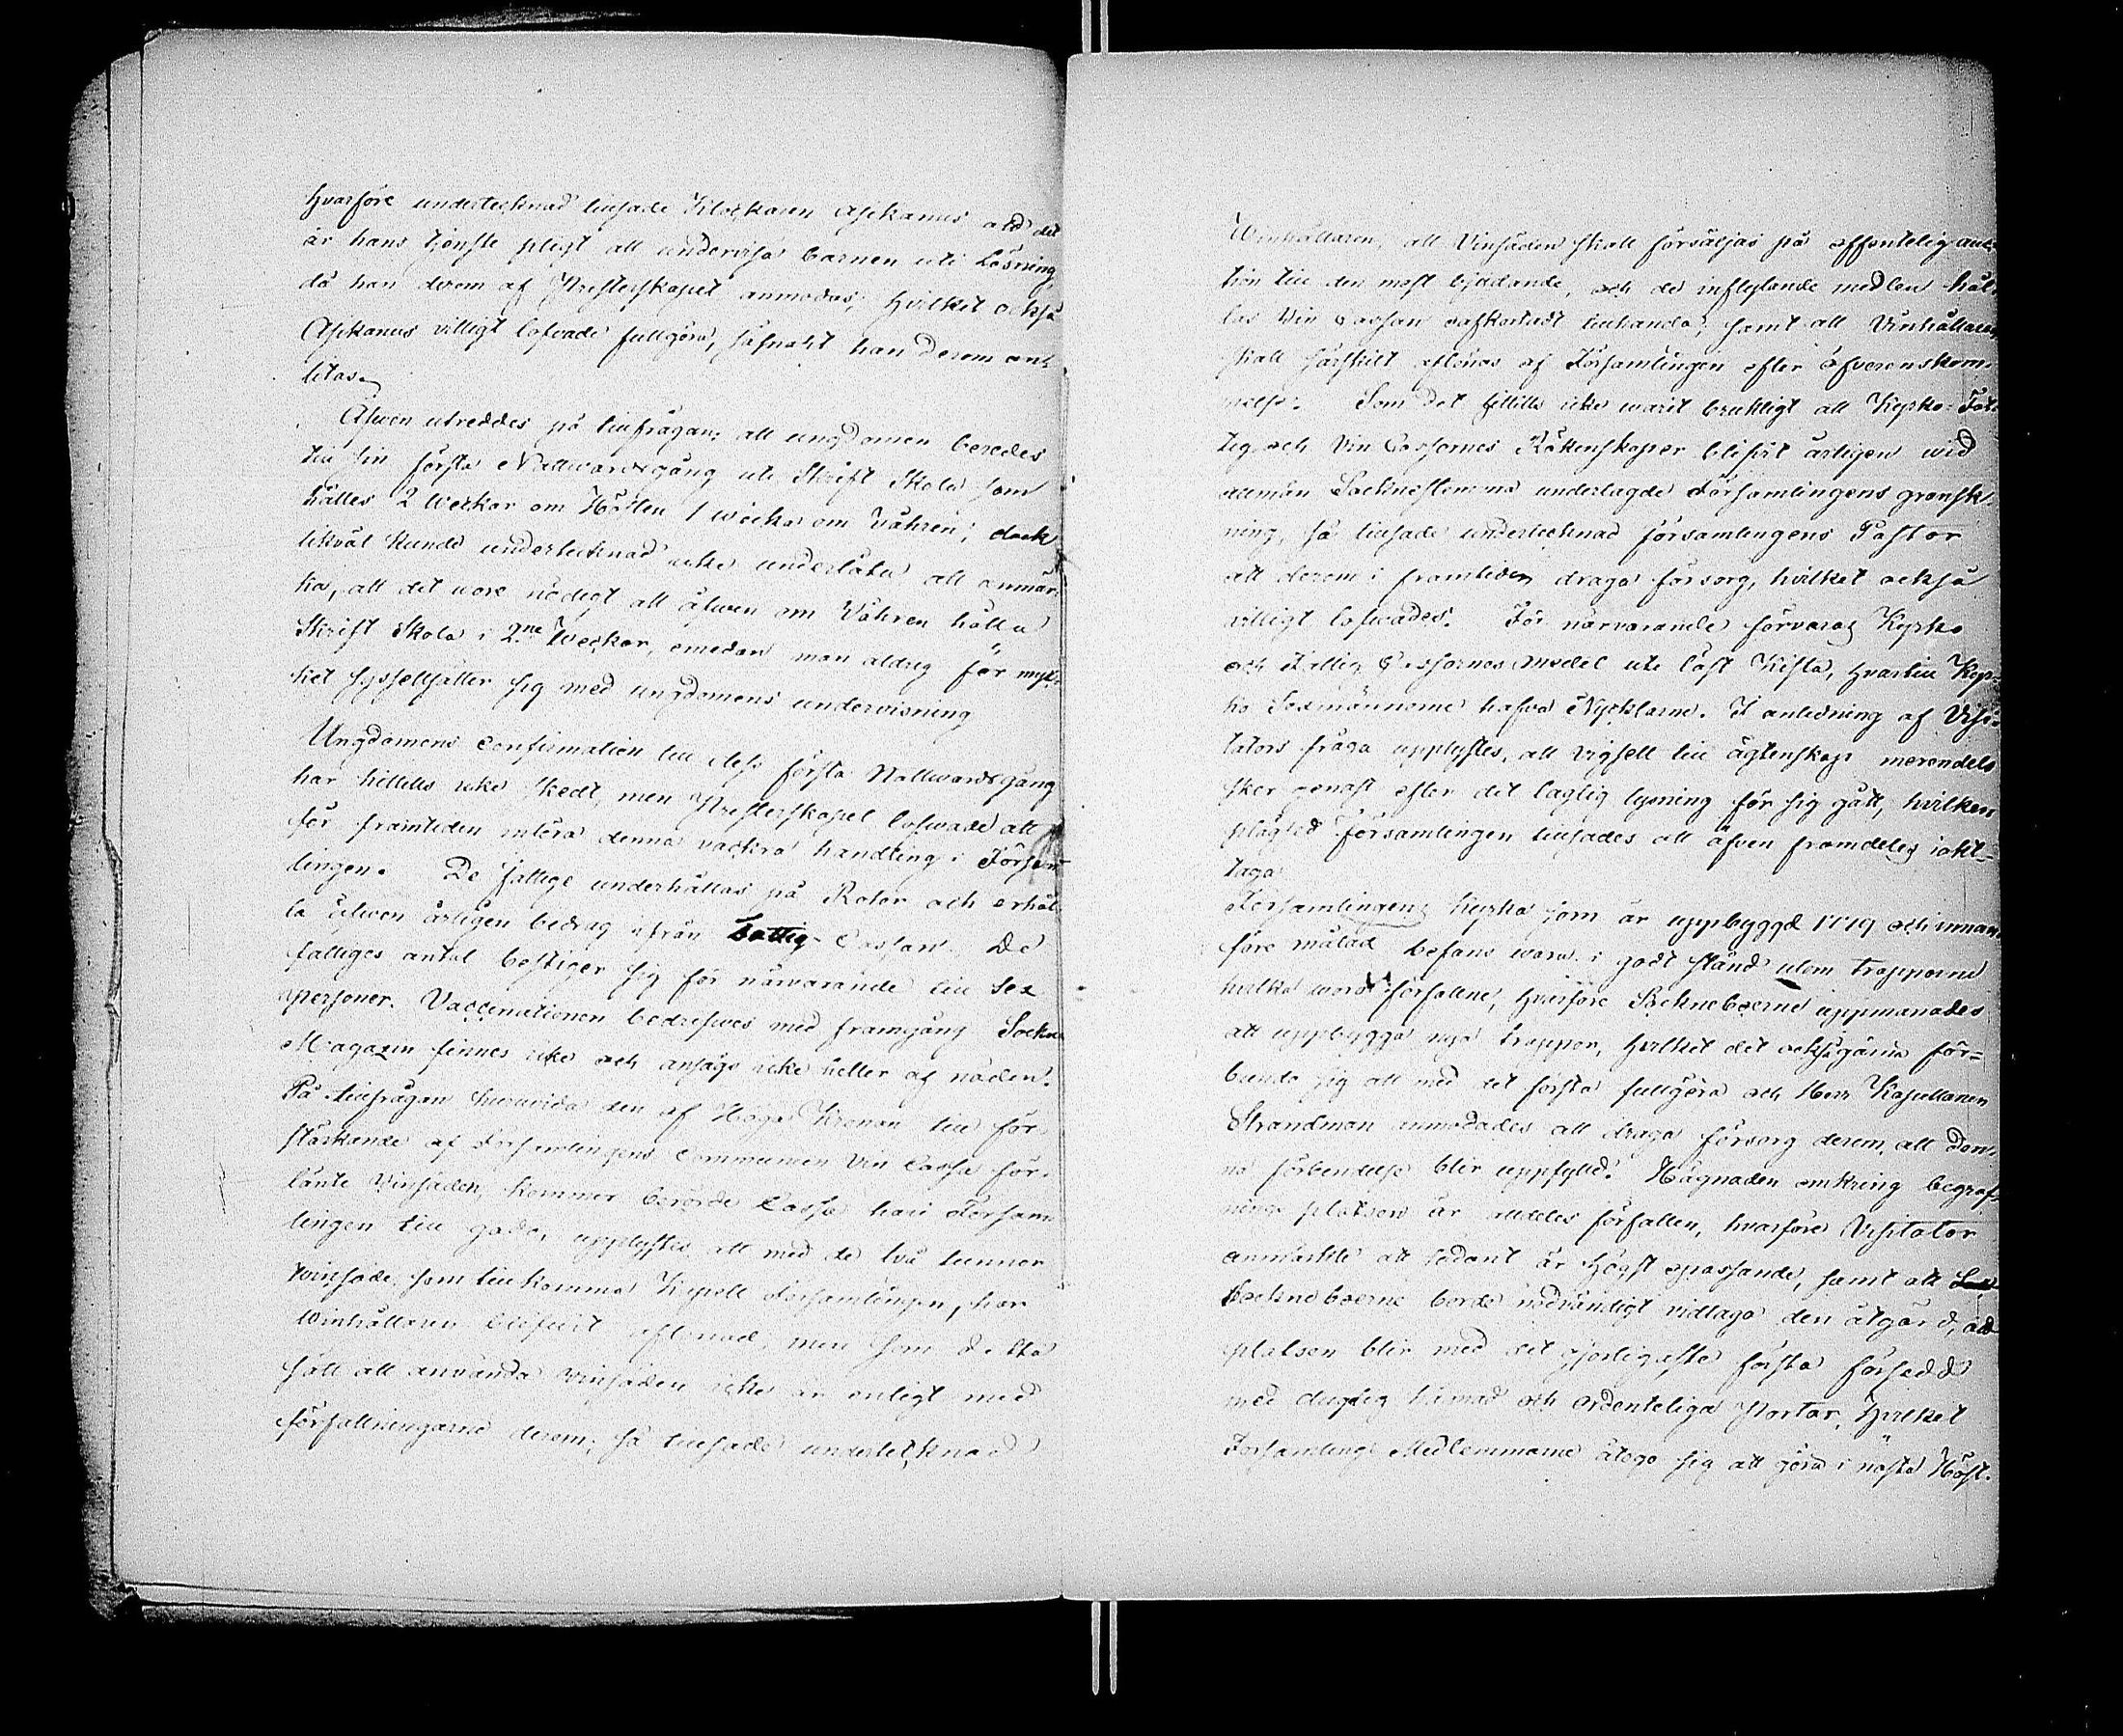 Hvarföre undertecknad tillsade Klockaren Aschanus at det
är hans tjenste pligt att undervisa barnen uti Läsning
då han derom af Presterskapet anmodas; Hvilket också
Aschanus villigt lofvade fullgöra, såsnart han derom an-
litas.
Äfwen utreddes på tillfrågan; att ungdomen beredes
till sin första Nattwardsgång uti Skrift Skola som
hålles 2 Weckor om Hösten 1 wecka om Våhren; dock
likväl kunde undertecknad icke underlåta att anmär-
ka, att det wore nödigt att äfwen om Våhren hålla
Skrift Skola i 2ne Weckor, emedan man aldrig för myc-
ket sysselsätter sig med ungdomens undervisning
Ungdomens confirmation till dess första Nattwardsgång
har hittills icke skedt, men Presterskapet lofwade att
för framtiden införa denna vackra handling i Försam-
lingen. De fattige underhållas på Rotor och erhål-
la äfwen årligen bidrag ifrån Fattig-Cassan. De
fattiges antal bestiger sig för närvarande till sex
personer. Vaccinationen bedrifwes med framgång Sockne
Magazin finnes icke och ansågs icke heller af nöden.
På tillfrågan huruvida den af Höga Kronan till för-
stärkande af Församlingens Communion Vin Cassa för-
länte Vinsäden, kommer berörde Cassa har i Försam-
lingen till godo, upplystes att med de två tunnor
winsäde, som tillkomma Kapell Församlingen, har
winhållaren blifvit aflönad, men som detta
sätt att använda winsäden icke är enligt med
författningarne derom; så tillsade undertecknad
Winhållaren, att Vinsäden skall försäljas på offentelig auc-
tion till den mest bjudande, och de inflytande medlen hål-
las Vin Cassan oafkortadt tillhanda; samt att Vinhållaren
skall särskilt aflönas af Församlingen efter öfverenskom-
melse. Som det hittills icke warit brukligt att Kyrko- Fat-
tig och Vin Cassornes Räkenskaper blifvit årligen wid
allmän Sockenstemma underlagde Församlingens gransk-
ning, så tillsade undertecknad församlingens Pastor
att derom i framtiden draga försorg, hvilket också
villigt lofwades. För närvarande förvaras Kyrko
och Fattig Cassornes medel uti låst Kista, hvartill Kyr-
ko Sexmännerne hafva Nycklarne. I anledning af Visi-
tators fråga upplystes, att vigsell till ägtenskap merendels
sker genast efter det laglig lysning för sig gått, hvilken
plägsed Församlingen tillsades att äfven framdeles iakt-
taga
Församlingens Kyrka som är uppbyggd 1779 och innan
före målad befans wara i godt stånd utom trapporne
hvilka woro förfallne, hvarföre Sockneboerne uppmanades
att uppbygga nya trappor, hvilket det också gärna för-
bundo sig att med det första fullgöra och Herr Kapellanen
Strandman anmodades att draga försorg derom, att den-
na förbindelse blir uppfylld. Hägnaden omkring begraf-
nings platsen är alldeles förfallen, hvarföre Visitator
anmärkte att sådant är högst opassande, samt att
Sockneboerne borde nödvändigt vidtaga den åtgärd, att
platsen blir med det gjörligaste första försedd
med dugtig hämnad och ordenteliga Portar, Hvilket
Församlings Medlemmarne åtogo sig att göra i nästa Höst.